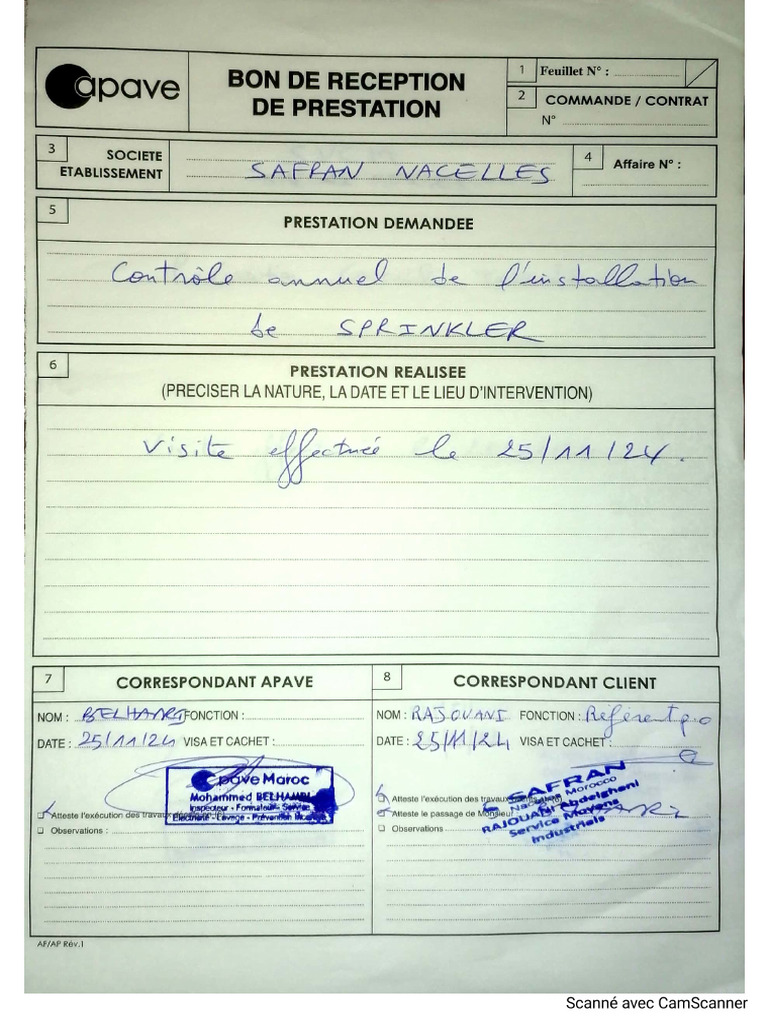 apave
BON DE RECEPTION
DE PRESTATION
1 Feuillet N° :
2 COMMANDE / CONTRAT
N°
3 SOCIETE
ETABLISSEMENT
SAFRAN NACELLES
4 Affaire N° :
5
PRESTATION DEMANDEE
Contrôle annuel de l'installation
de SPRINKLER
6
PRESTATION REALISEE
(PRECISER LA NATURE, LA DATE ET LE LIEU D'INTERVENTION)
Visite effectuée le 25/11/24.
7 CORRESPONDANT APAVE
NOM : FONCTION :
DATE : 25/11/24 VISA ET CACHET :
apave Maroc
Mohammed
Inspecteur - Formateur - Service
Electricité - Levage - Prévention Incendie
Atteste l'exécution des travaux
Observations :
8 CORRESPONDANT CLIENT
NOM : RAJOUANI FONCTION : Référent
DATE : 25/11/24 VISA ET CACHET :
SAFRAN
Nacelles Morocco
RAJOUANI Abdelghani
Service Moyens
Industriels
Atteste l'exécution des travaux
Atteste le passage de Monsieur
Observations
AF/AP Rév.1
Scanné avec CamScanner